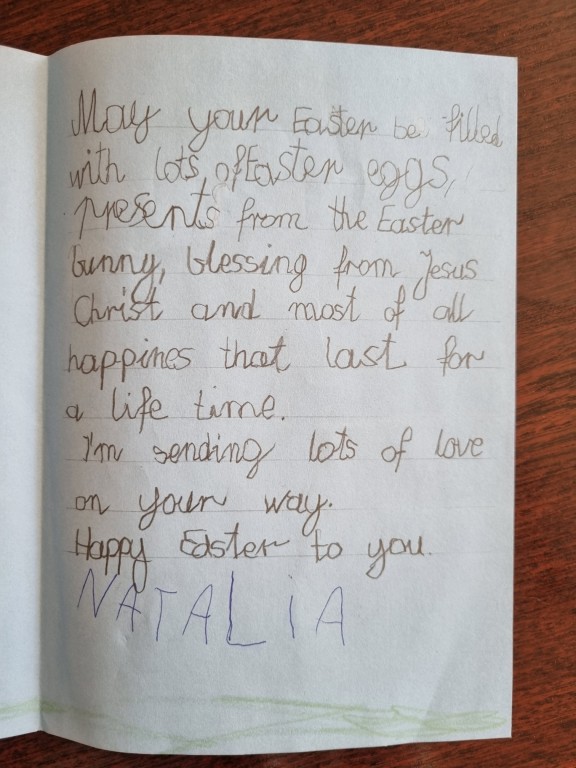 May your Easter be filled
with lots of Easter eggs,
presents from the Easter
bunny, blessing from Jesus
Christ and most of all
happines that last for
a life time.
I'm sending lots of love
on your way.
Happy Easter to you.
NATALiA